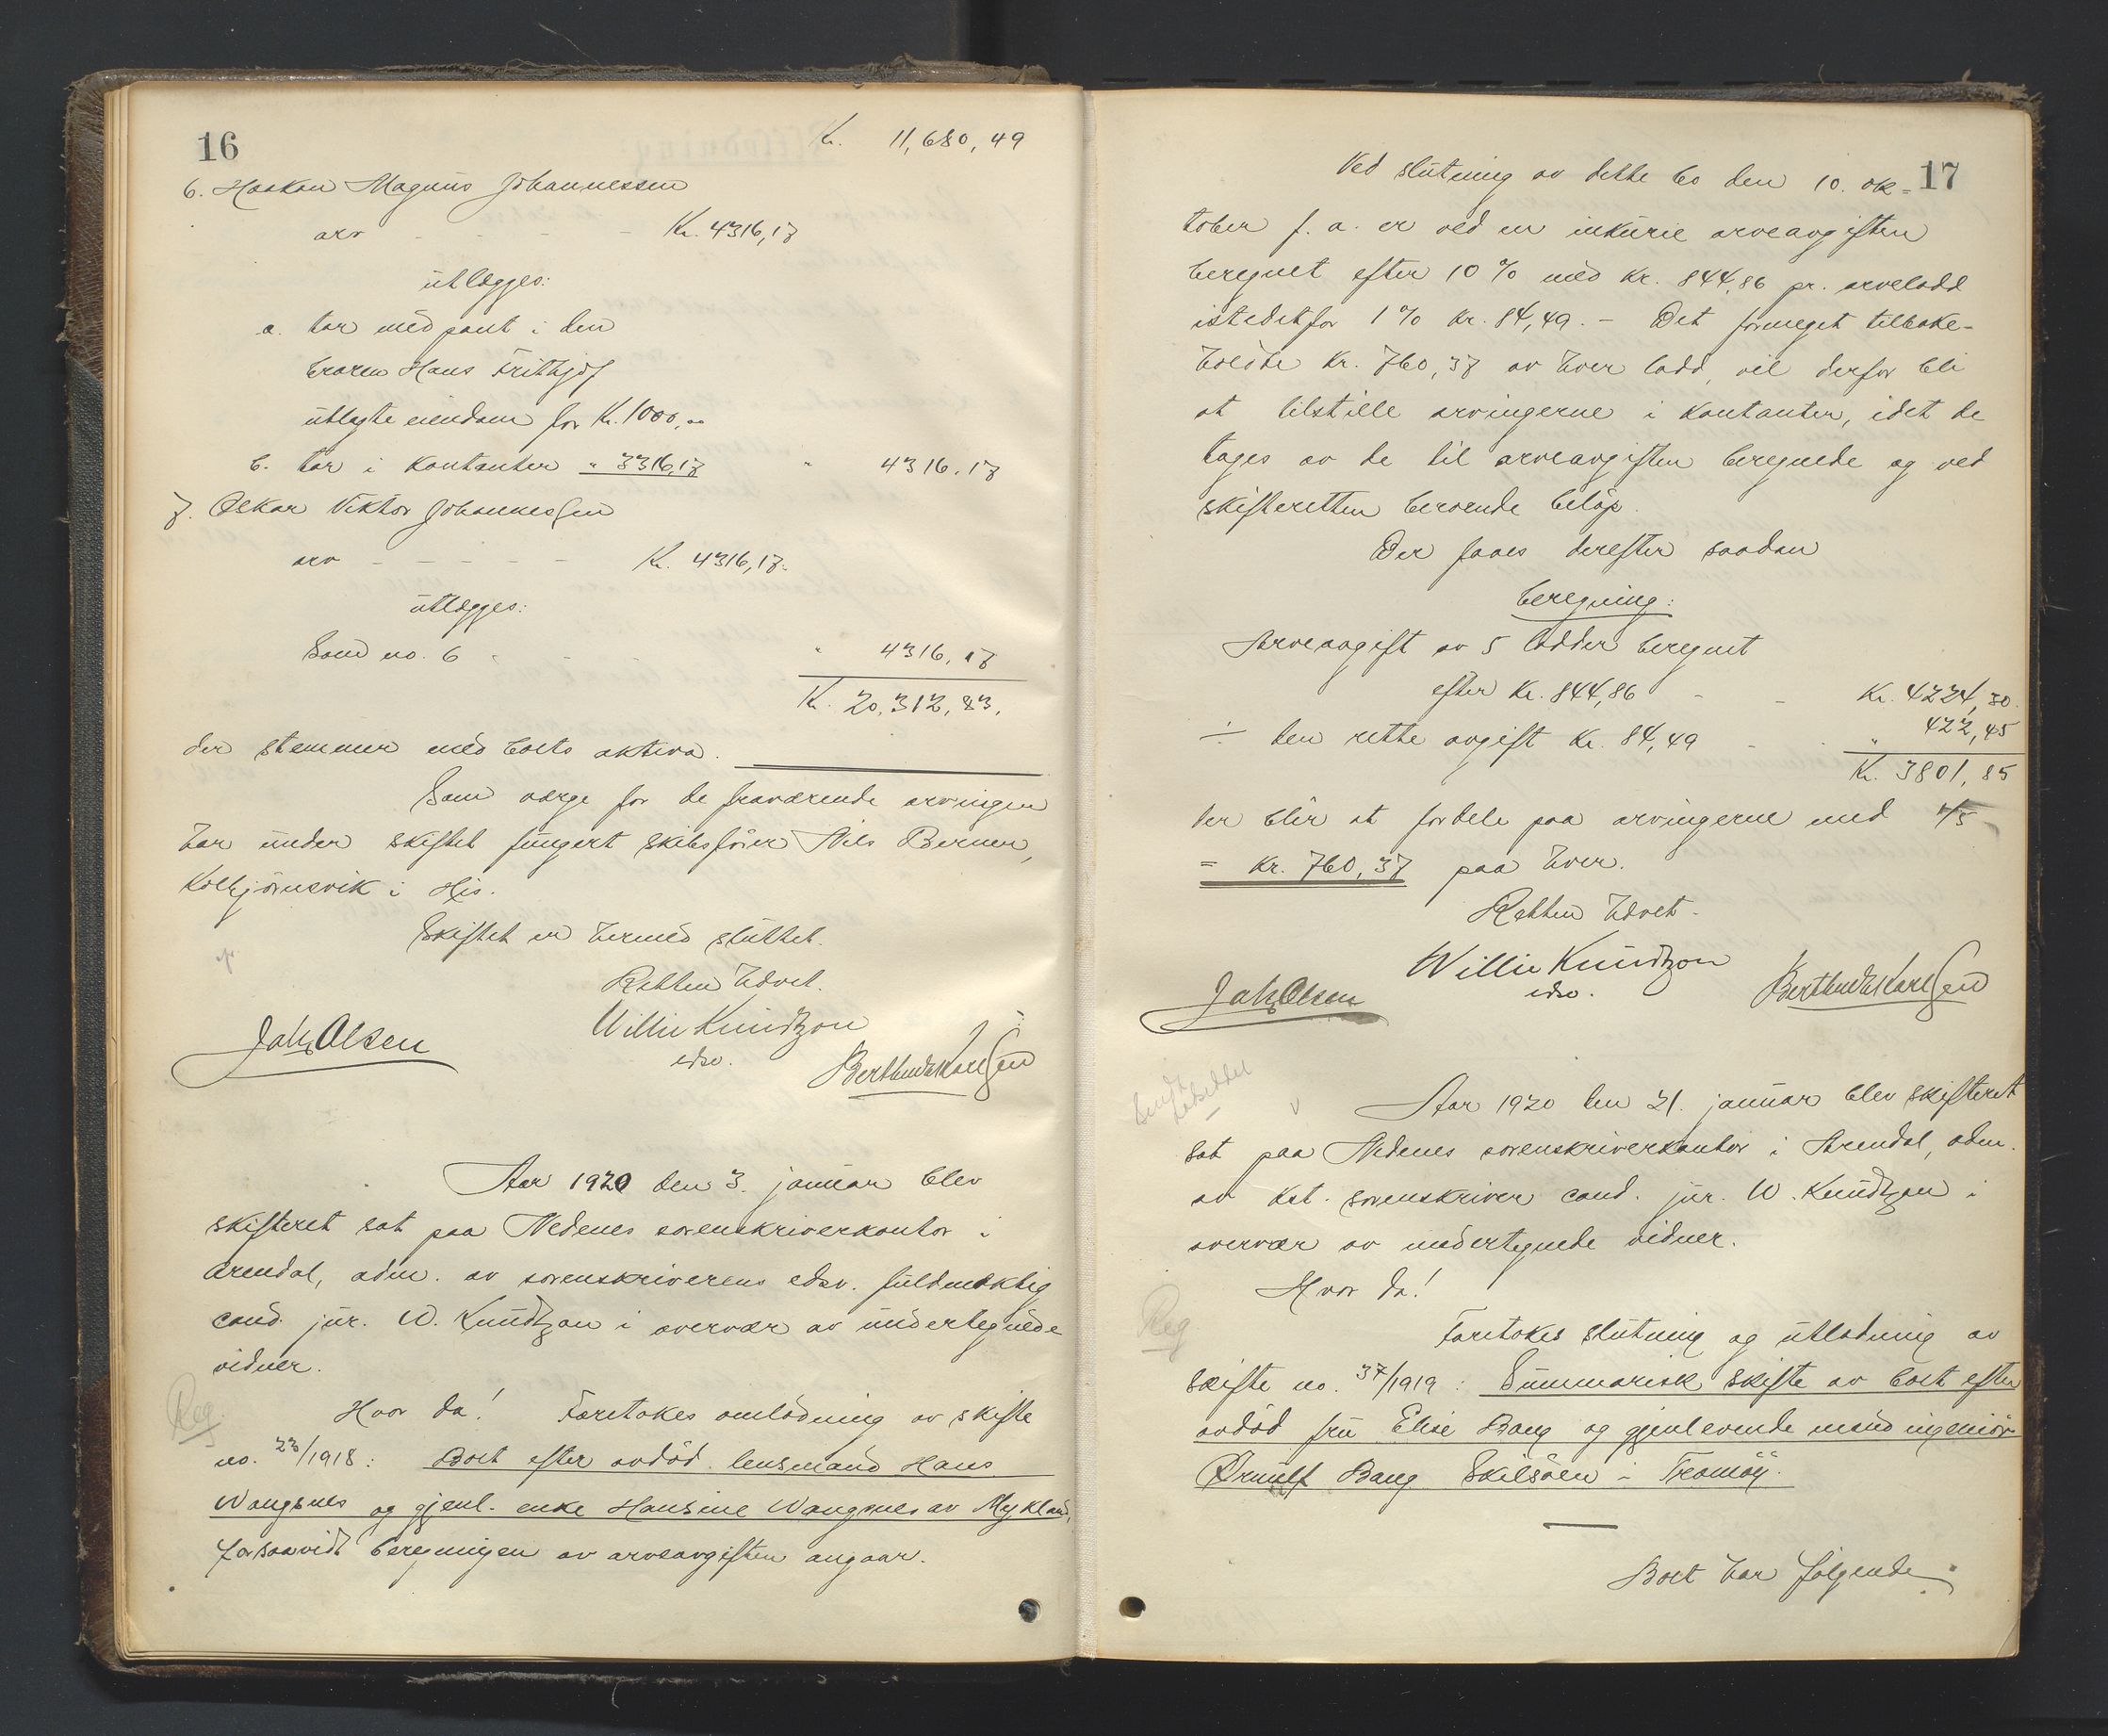 16
Kr. 11,680,49
6. Haakon Magnus Johannessen
arv - - - - Kr. 4316,17
utlægges:
a. har med pant i den
broren Hans Frithjof
utlagte eiendom for Kr. 1000,00
b. har i kontanter " 3316,17 " 4316.17
7. Oskar Viktor Johannessen
arv - - - - - Kr. 4316,17.
utlægges:
Som no. 6 - - - " 4316,17
Kr. 20,312,83.
der stemmer med boets aktiva.
Som værge for de fraværende arvinger
har under skiftet fungert skibsfører Nils Berner,
Kolbjørnsvik i His.
Skiftet er hermed sluttet.
Retten hævet.
Willie Knudtzon
edsv.
Joh. Olsen
Berthud Karlsen
Aar 1920 den 3. januar blev
skifteret sat paa Nedenes sorenskriverkontor i
Arendal, adm. av sorenskriverens edsv. fuldmæktig
cand. jur. W. Knudtzon i overvær av undertegnede
vidner.
Reg.
Hvor da! Foretokes omlodning av skifte
no. 23/1918: Boet efter avdød lensmand Hans
Wangsnes og gjenl. enke Hansine Wangsnes av Mykland,
forsaavidt beregningen av arveavgiften angaar.
17
Ved slutning av dette bo den 10. ok-
tober f. a. er ved en inkurie arveavgiften
beregnet efter 10 % med kr. 844,86 pr. arvelodd
istedetfor 1 % kr. 84,49. - Det formeget tilbake-
holdte kr. 760,37 av hver lodd, vil derfor bli
at tilstille arvingerne i kontanter, idet de
tages av de til arveavgiften beregnede og ved
skifteretten beroende beløp.
Der faaes derefter saadan
beregning:
Arveavgift av 5 lodder beregnet
efter kr. 844,86 - - Kr. 4224,30.
÷ den rette avgift kr. 84,49 - - " 422,45
Kr. 3801,85
der blir at fordele paa arvingerne med 1/5
= kr. 760,37 paa hver.
Retten hævet.
Willie Knudtzon
edsv.
Joh. Olsen
Berthud Karlsen
Aar 1920 den 21. januar blev skifteret
sat paa Nedenes sorenskriverkontor i Arendal, adm.
av kst. sorenskriver cand. jur. W. Knudtzon i
overvær av undertegnede vidner.
Hvor da!
Reg.
Foretokes slutning og utlodning av
skifte no. 37/1919: Summarisk skifte av boet efter
avdød fru Elise Bang og gjenlevende mand ingeniør
Ørnulf Bang Skilsøen i Tromøy.
Boet har følgende: